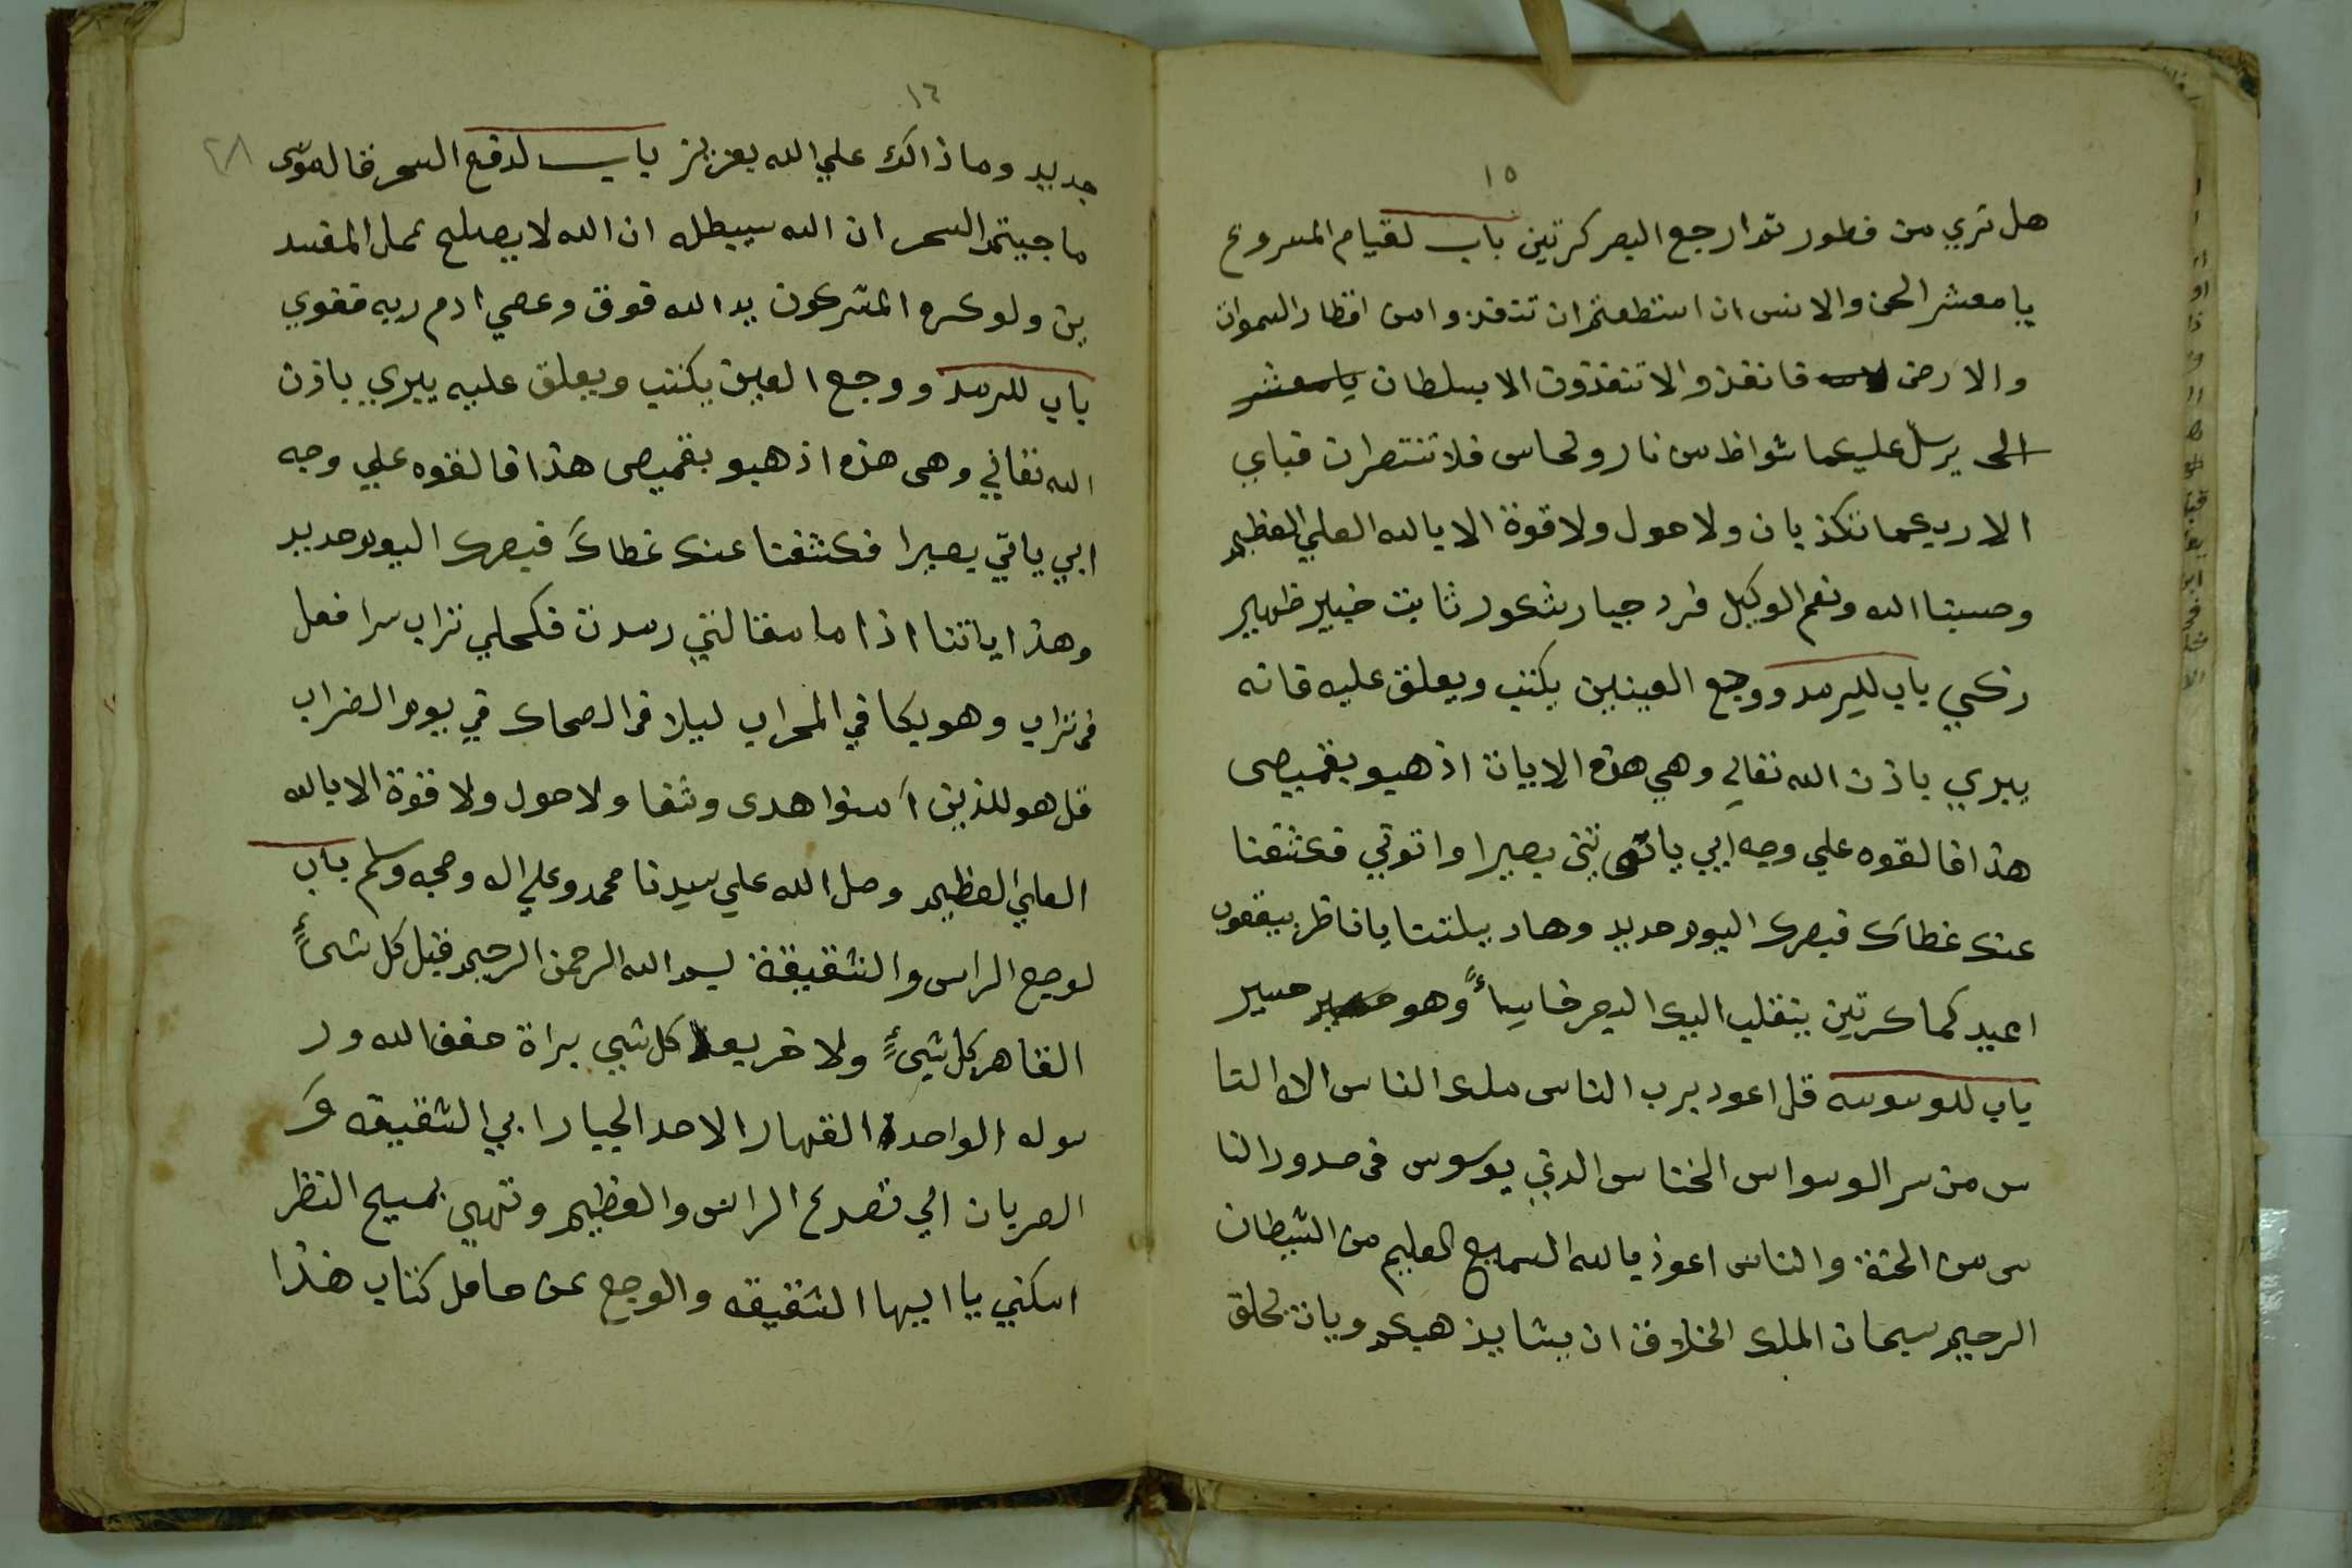 ١٥
هل تري من فطور ثم ارجع البصر كرتين باب لقيام المسروع
يا معشر الجن والانس ان استطعتم ان تنفذوا من اقطار السموات
والارض فانفذوا لا تنفذون الا بسلطان يا معشر
الجن يرسل عليكما شواظ من نار ونحاس فلا تنتصران فباي
الا ربكما تكذبان ولا حول ولا قوة الا بالله العلي العظيم
وحسبنا الله ونعم الوكيل فرد جبار شكور ثابت خبير ظهير
زكي باب للرمد ووجع العينين يكتب ويعلق عليه فانه
يبري باذن الله تعالي وهي هذه الايات اذهبو بقميصي
هذا فالقوه علي وجه ابي يات بصيرا واتوني فكشفنا
عنك غطاك فبصرك اليوم حديد
اعيد كما كرتين ينقلب اليك البصر خاسياً وهو حسير
باب للوسوسه قل اعود برب الناس ملك الناس الاه النا
س من سر الوسواس الخناس الدي يوسوس في صدور النا
س من الجنة والناس اعوذ بالله السميع العليم من الشيطان
الرجيم سبحان الملك الخلاق ان يشا يذهبكم ويات بخلق
١٦
٢٨
جديد وما ذالك علي الله بعزيز باب لدفع السحر قال موسى
ما جيتم السحر ان الله سيبطله ان الله لا يصلح عمل المفسد
ين ولو كره المشركون يد الله فوق وعصي ادم ربه فغوي
باب للرمد ووجع العين يكتب ويعلق عليه يبري باذن
الله تعالي وهي هذه اذهبو بقميصي هذا فالقوه علي وجه
ابي ياتي بصيرا فكشفنا عنك غطاك فبصرك اليوم حديد
وهذا اياتنا اذا ما رمدت فكحلي تراب
في تراب وهو بكا في المحراب ليلا في يوم الضراب
قل هو للذين آمنوا هدى وشفا ولا حول ولا قوة الا بالله
العلي العظيم وصل الله علي سيدنا محمد وعلي اله وصحبه وسلم باب
لوجع الراس والشقيقة بسم الله الرحمن الرحيم قبل كل شىءٍ
القاهر كل شىءٍ ولا كل شيي براة من الله ور
سوله الواحد القهار الاحد الجبار ايي الشقيقه و
الضربان الي تصدع الراس والعظيم وتهي النظر
اسكني يا ايها الشقيقه والوجع عن حامل كتاب هذا